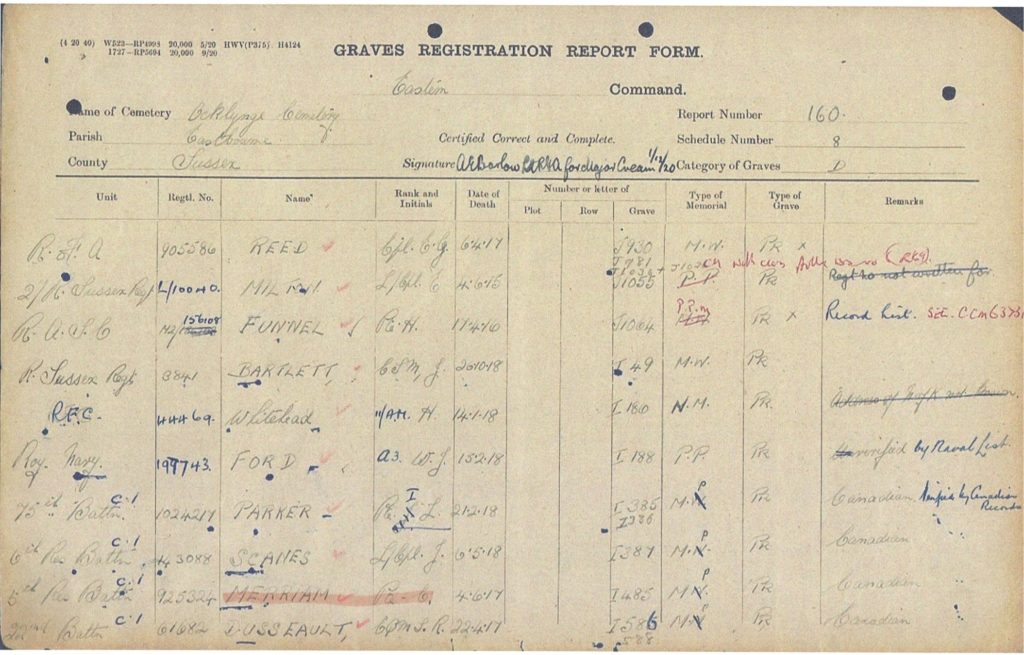 (4 20 40) W523—RP4998 20,000 5/20 HWV(P375) H4124
1727—RP5694 20,000 9/20
GRAVES REGISTRATION REPORT FORM.
Eastern Command.
Name of Cemetery Ocklynge Cemetery Report Number 160.
Parish Eastbourne Certified Correct and Complete. Schedule Number 8
County Sussex Signature AEBarlow for Major 1/12/20 Category of Graves D
Unit Regtl. No. Name Rank and Initials Date of Death Number or letter of Plot Row Grave Type of Memorial Type of Grave Remarks
R. F. A 905586 REED Cpl. C.G. 6.4.17 J930 M.W. PR x
J981
J1032 + with
2/R. Sussex Regt L/10040. L/Cpl. E 4.6.15 J1055 P.P. PR Regt no not written for
R. A. S. C M2/ 156108 FUNNEL Pt. H. 17.4.16 J1064 P.P.M PR x Record List.
R. Sussex Regt 3841 BARTLETT, CSM, J. 20.10.18 I 49 M.W. PR
R.F.C. 44469. Whitehead H. 14.1.18 I 180 N.M. PR
Roy. Navy. 199743. FORD W.J. 15.2.18 I 188 P.P. PR verified by Naval List.
75th Battn. C.I 1024217 PARKER Pt. I L. 21.2.18 I 385 M.W. P PR Canadian Verified by Canadian Records
I 386
6th Res Battn C.I 43088 SCANES L/Cpl. J. 6.5.18 I 387 M.W. P PR Canadian "
5th Res Battn C.I 925324 MERRIAM Pt. C. 4.6.17 I 485 M.W. P PR Canadian "
22nd Battn C.I 61682 DUSSEAULT, CSM L.R. 22.4.17 I 586 M.W. P PR Canadian "
588